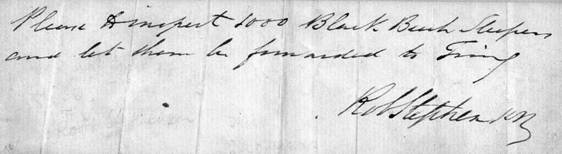 Please to inspect 1000 Black Birch Sleepers
and let them be forwarded to Tring
Rob Stephenson